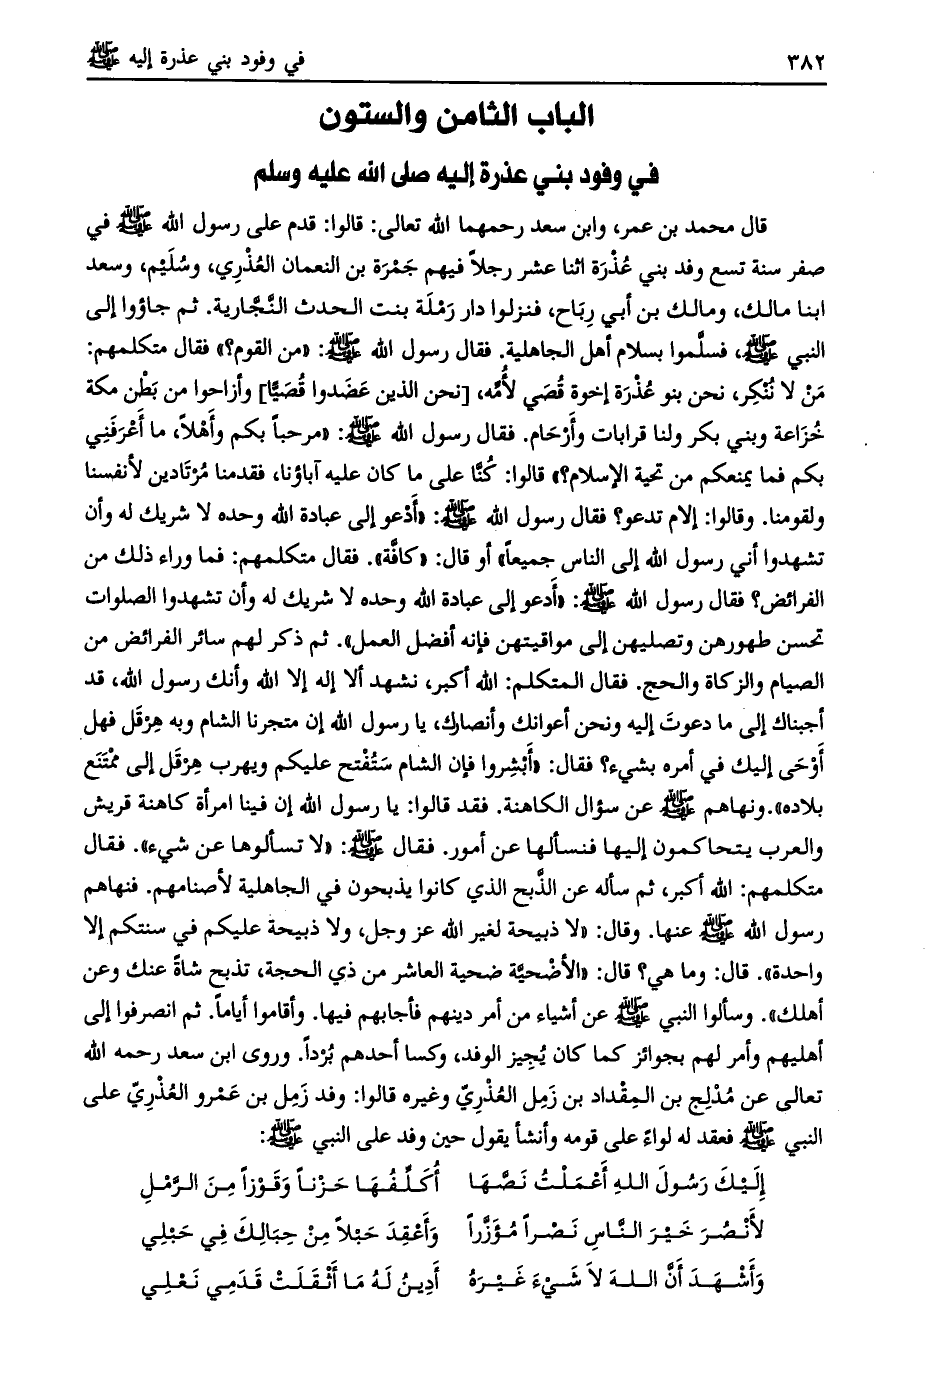 ٣٨٢ في وفود بني عذرة إليه ﷺ
الباب الثامن والستون
في وفود بني عذرة إليه صلى الله عليه وسلم
قال محمد بن عمر، وابن سعد رحمهما الله تعالى: قالوا: قدم على رسول الله ﷺ في
صفر سنة تسع وفد بني عُذْرَة اثنا عشر رجلاً فيهم جَمْرَة بن النعمان العُذْرِي، وسُلَيْم، وسعد
ابنا مالك، ومالك بن أبي رِبَاح، فنزلوا دار رَمْلَة بنت الحدث النَّجَّارية. ثم جاؤوا إلى
النبي ﷺ، فسلَّموا بسلام أهل الجاهلية. فقال رسول الله ﷺ: «من القوم؟» فقال متكلمهم:
مَنْ لا تُنْكِر، نحن بنو عُذْرَة إخوة قُصَي لأُمِّه، [نحن الذين عَضَدوا قُصَيًّا] وأزاحوا من بَطْن مكة
خُزَاعة وبني بكر ولنا قرابات وأَرْحَام. فقال رسول الله ﷺ: «مرحباً بكم وأَهْلاً، ما أَعْرَفَنِي
بكم فما يمنعكم من تحية الإسلام؟» قالوا: كُنَّا على ما كان عليه آباؤنا، فقدمنا مُرْتَادين لأنفسنا
ولقومنا. وقالوا: إلام تدعو؟ فقال رسول الله ﷺ: «أَدْعو إلى عبادة الله وحده لا شريك له وأن
تشهدوا أني رسول الله إلى الناس جميعاً» أو قال: «كافَّة». فقال متكلمهم: فما وراء ذلك من
الفرائض؟ فقال رسول الله ﷺ: «أَدعو إلى عبادة الله وحده لا شريك له وأن تشهدوا الصلوات
تحسن طهورهن وتصليهن إلى مواقيتهن فإنه أفضل العمل». ثم ذكر لهم سائر الفرائض من
الصيام والزكاة والحج. فقال المتكلم: الله أكبر، نشهد ألا إله إلا الله وأنك رسول الله، قد
أجبناك إلى ما دعوتَ إليه ونحن أعوانك وأنصارك، يا رسول الله إن متجرنا الشام وبه هِرْقَل فهل
أَوْحَى إليك في أمره بشيء؟ فقال: «أَبْشِروا فإن الشام سَتُفْتح عليكم ويهرب هِرْقَل إلى مُمْتَنَع
بلاده».ونهاهم ﷺ عن سؤال الكاهنة. فقد قالوا: يا رسول الله إن فينا امرأة كاهنة قريش
والعرب يتحاكمون إليها فنسألها عن أمور. فقال ﷺ: «لا تسألوها عن شيء». فقال
متكلمهم: الله أكبر، ثم سأله عن الذَّبح الذي كانوا يذبحون في الجاهلية لأصنامهم. فنهاهم
رسول الله ﷺ عنها. وقال: «لا ذبيحة لغير الله عز وجل، ولا ذبيحة عليكم في سنتكم إلا
واحدة». قال: وما هي؟ قال: «الأضْحيَّة ضحية العاشر من ذي الحجة، تذبح شاةً عنك وعن
أهلك». وسألوا النبي ﷺ عن أشياء من أمر دينهم فأجابهم فيها. وأقاموا أياماً. ثم انصرفوا إلى
أهليهم وأمر لهم بجوائز كما كان يُجيز الوفد، وكسا أحدهم بُرْداً. وروى ابن سعد رحمه الله
تعالى عن مُدْلِج بن المِقْداد بن زَمِل العُذْرِيّ وغيره قالوا: وفد زَمِل بن عَمْرو العُذْرِيّ على
النبي ﷺ فعقد له لواءً على قومه وأنشأ يقول حين وفد على النبي ﷺ:
إِلَيْكَ رَسُولَ اللهِ أَعْمَلْتُ نَصَّهَا أُكَلِّفُهَا حَزْناً وَقَوْزاً مِنَ الرَّمْلِ
لأَنْصُرَ خَيْرَ النَّاسِ نَصْراً مُؤَزَّراً وَأَعْقِدَ حَبْلاً مِنْ حِبَالِكَ فِي حَبْلِي
وَأَشْهَدَ أَنَّ اللهَ لاَ شَيْءَ غَيْرَهُ أَدِينُ لَهُ مَا أَثْقَلَتْ قَدَمِي نَعْلِي